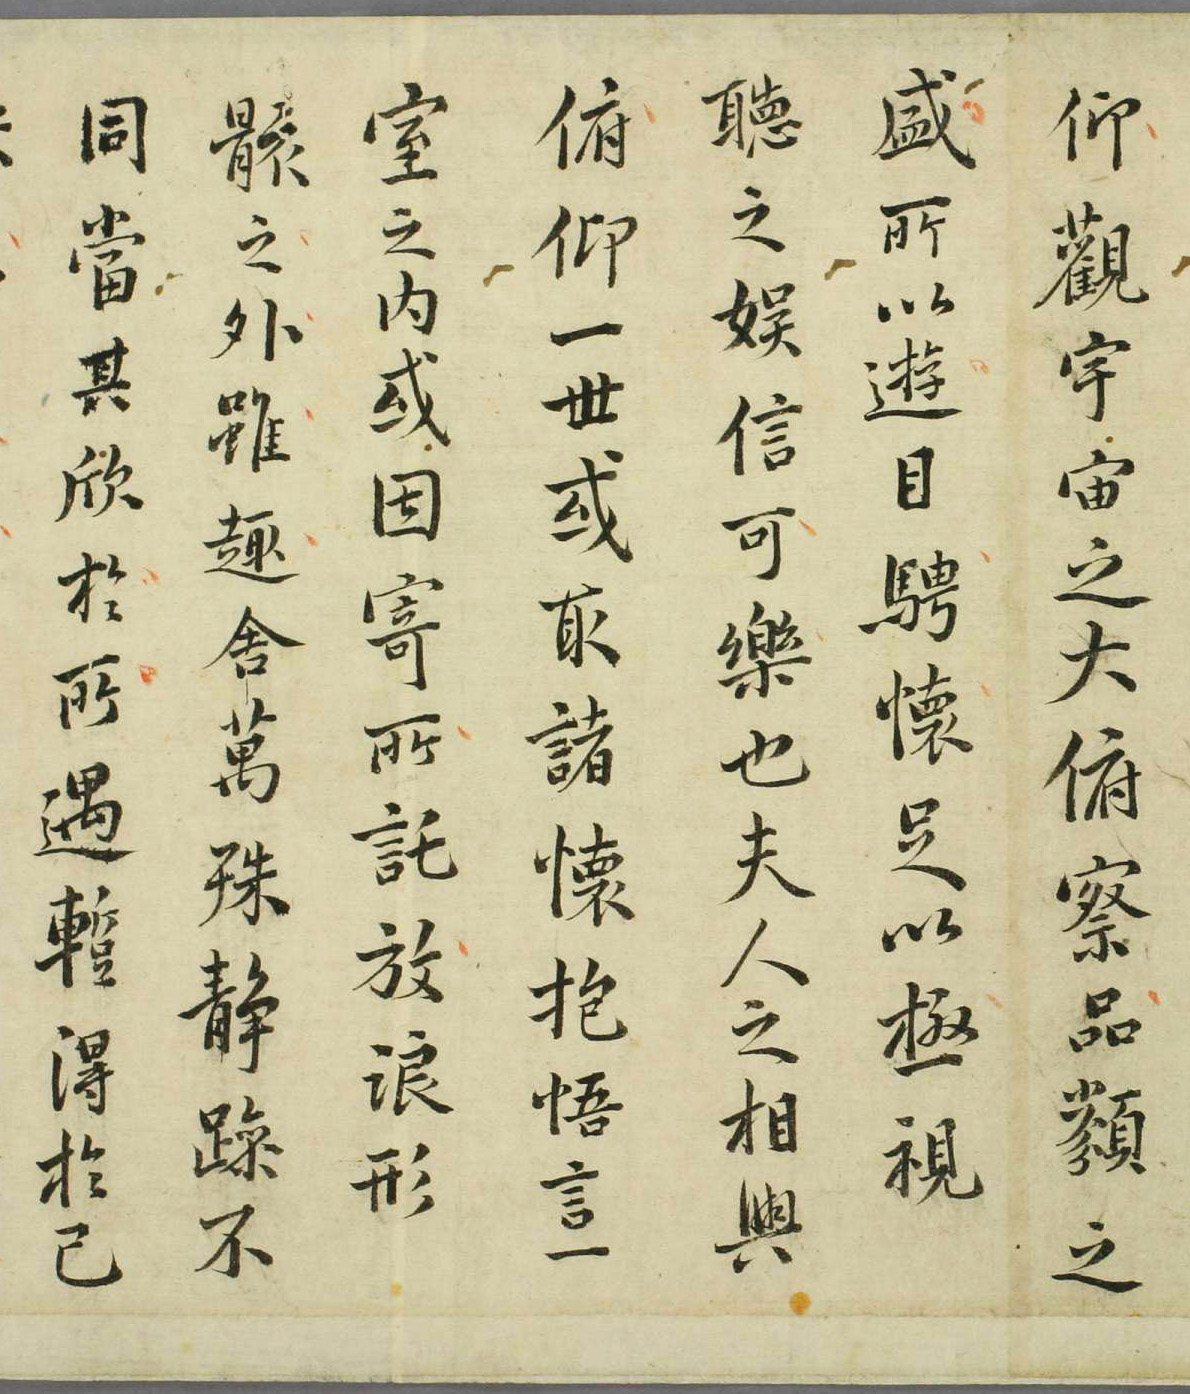 仰觀宇宙之大俯察品類之
盛所以遊目騁懷足以極視
聽之娱信可樂也夫人之相與
俯仰一世或取諸懷抱悟言一
室之内或因寄所託放浪形
骸之外雖趣舍萬殊静躁不
同當其欣於所遇暫得於己